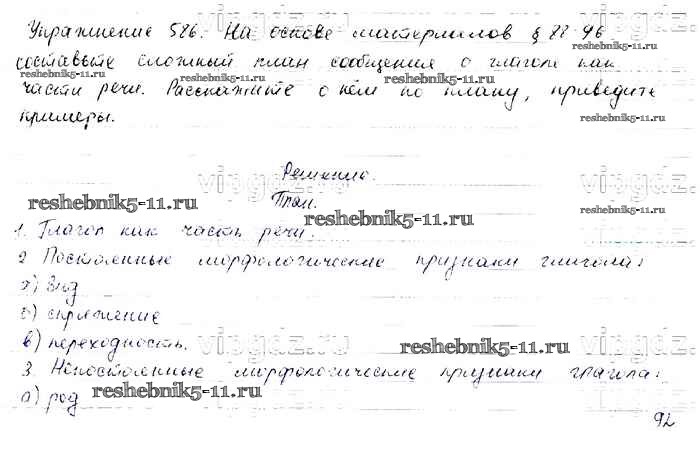 Упражнение 586. На основе материалов § 88-96
составьте сложный план сообщения о глаголе как
части речи. Расскажите о нём по плану, приведите
примеры.
Решение.
План.
1. Глагол как часть речи.
2 Постоянные морфологические признаки глагола:
а) вид
б) спряжение
в) переходность.
3. Непостоянные морфологические признаки глагола:
а) род
92
vipgdz.com
reshebnik5-11.ru
reshebnik5-11.ru
reshebnik5-11.ru
vipgdz.com
reshebnik5-11.ru
reshebnik5-11.ru
reshebnik5-11.ru
vipgdz.com
reshebnik5-11.ru
reshebnik5-11.ru